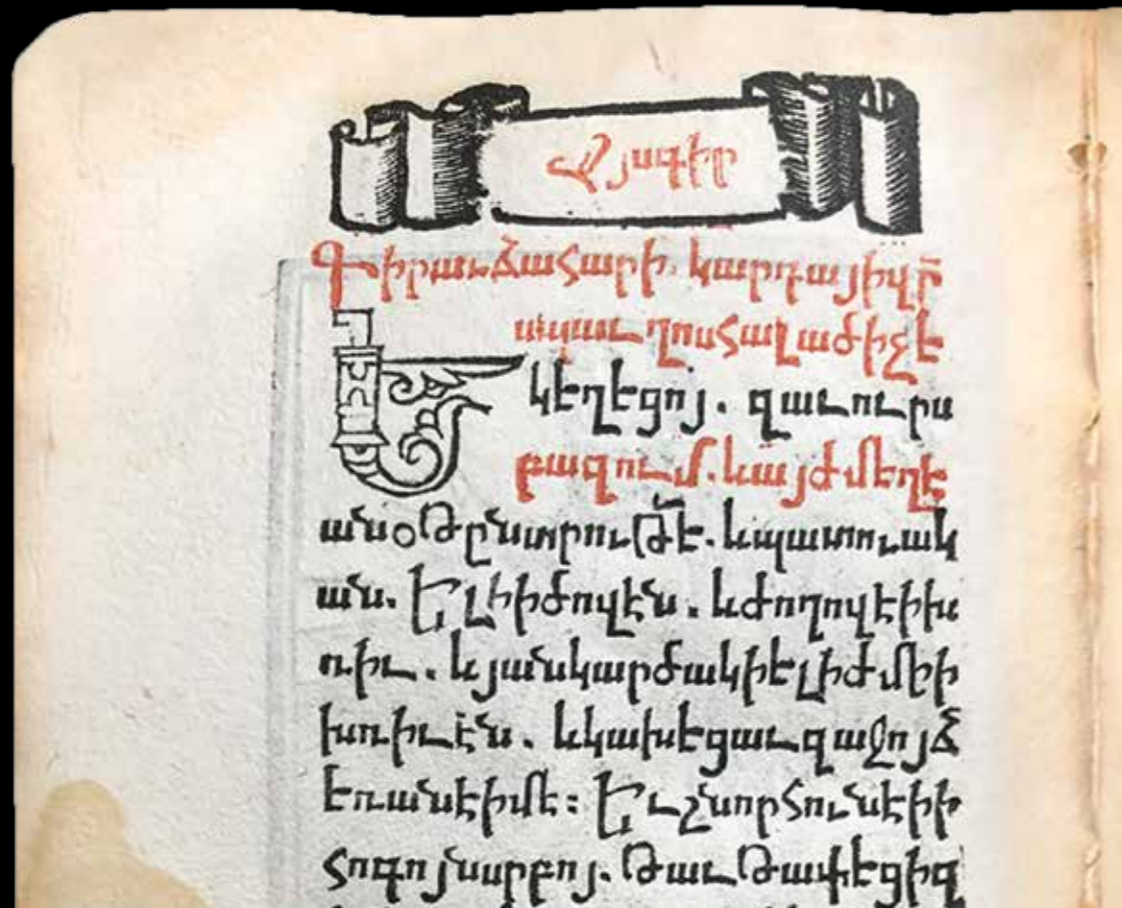 Գիրաւճահարի. կարդայիվր̃
ապաւղոսհալածիչէ
Եկեղեցոյ. զաւուրս
բազում. և այժմ եղէ
անօթ ընտրութէ. և պատուակ
ան. Ել ի ի ծովէն. և ժողովէի խ
ռիւ. և յանկարծակի ելի ժմի ի
խռիւէն. և կախեցաւ զաջոյճ
եռանէիմե։ Եւ շնորհունսէի ի
հոգոյն սրբոյ. թաւթափեցի զ